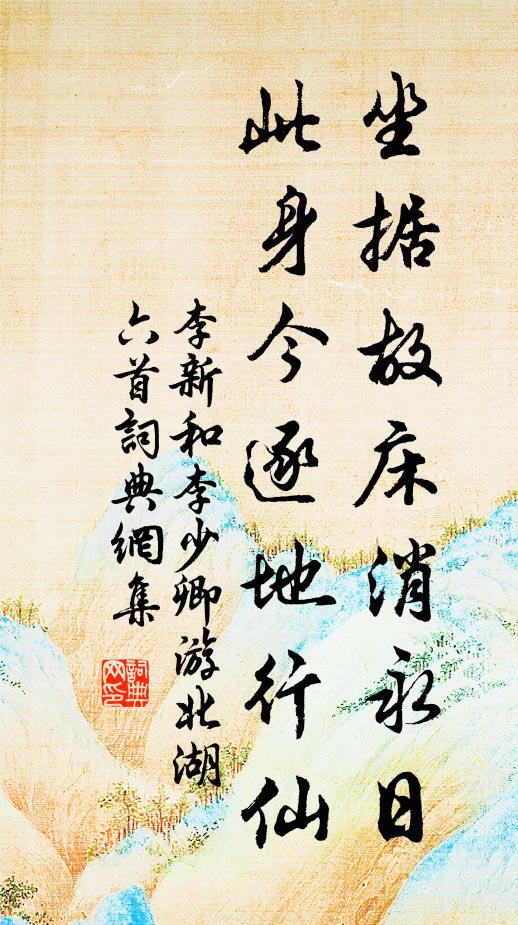 坐据故床消永日
此身今逐地行仙
李新和李少卿游北湖
六首詞典網集
詞典网印